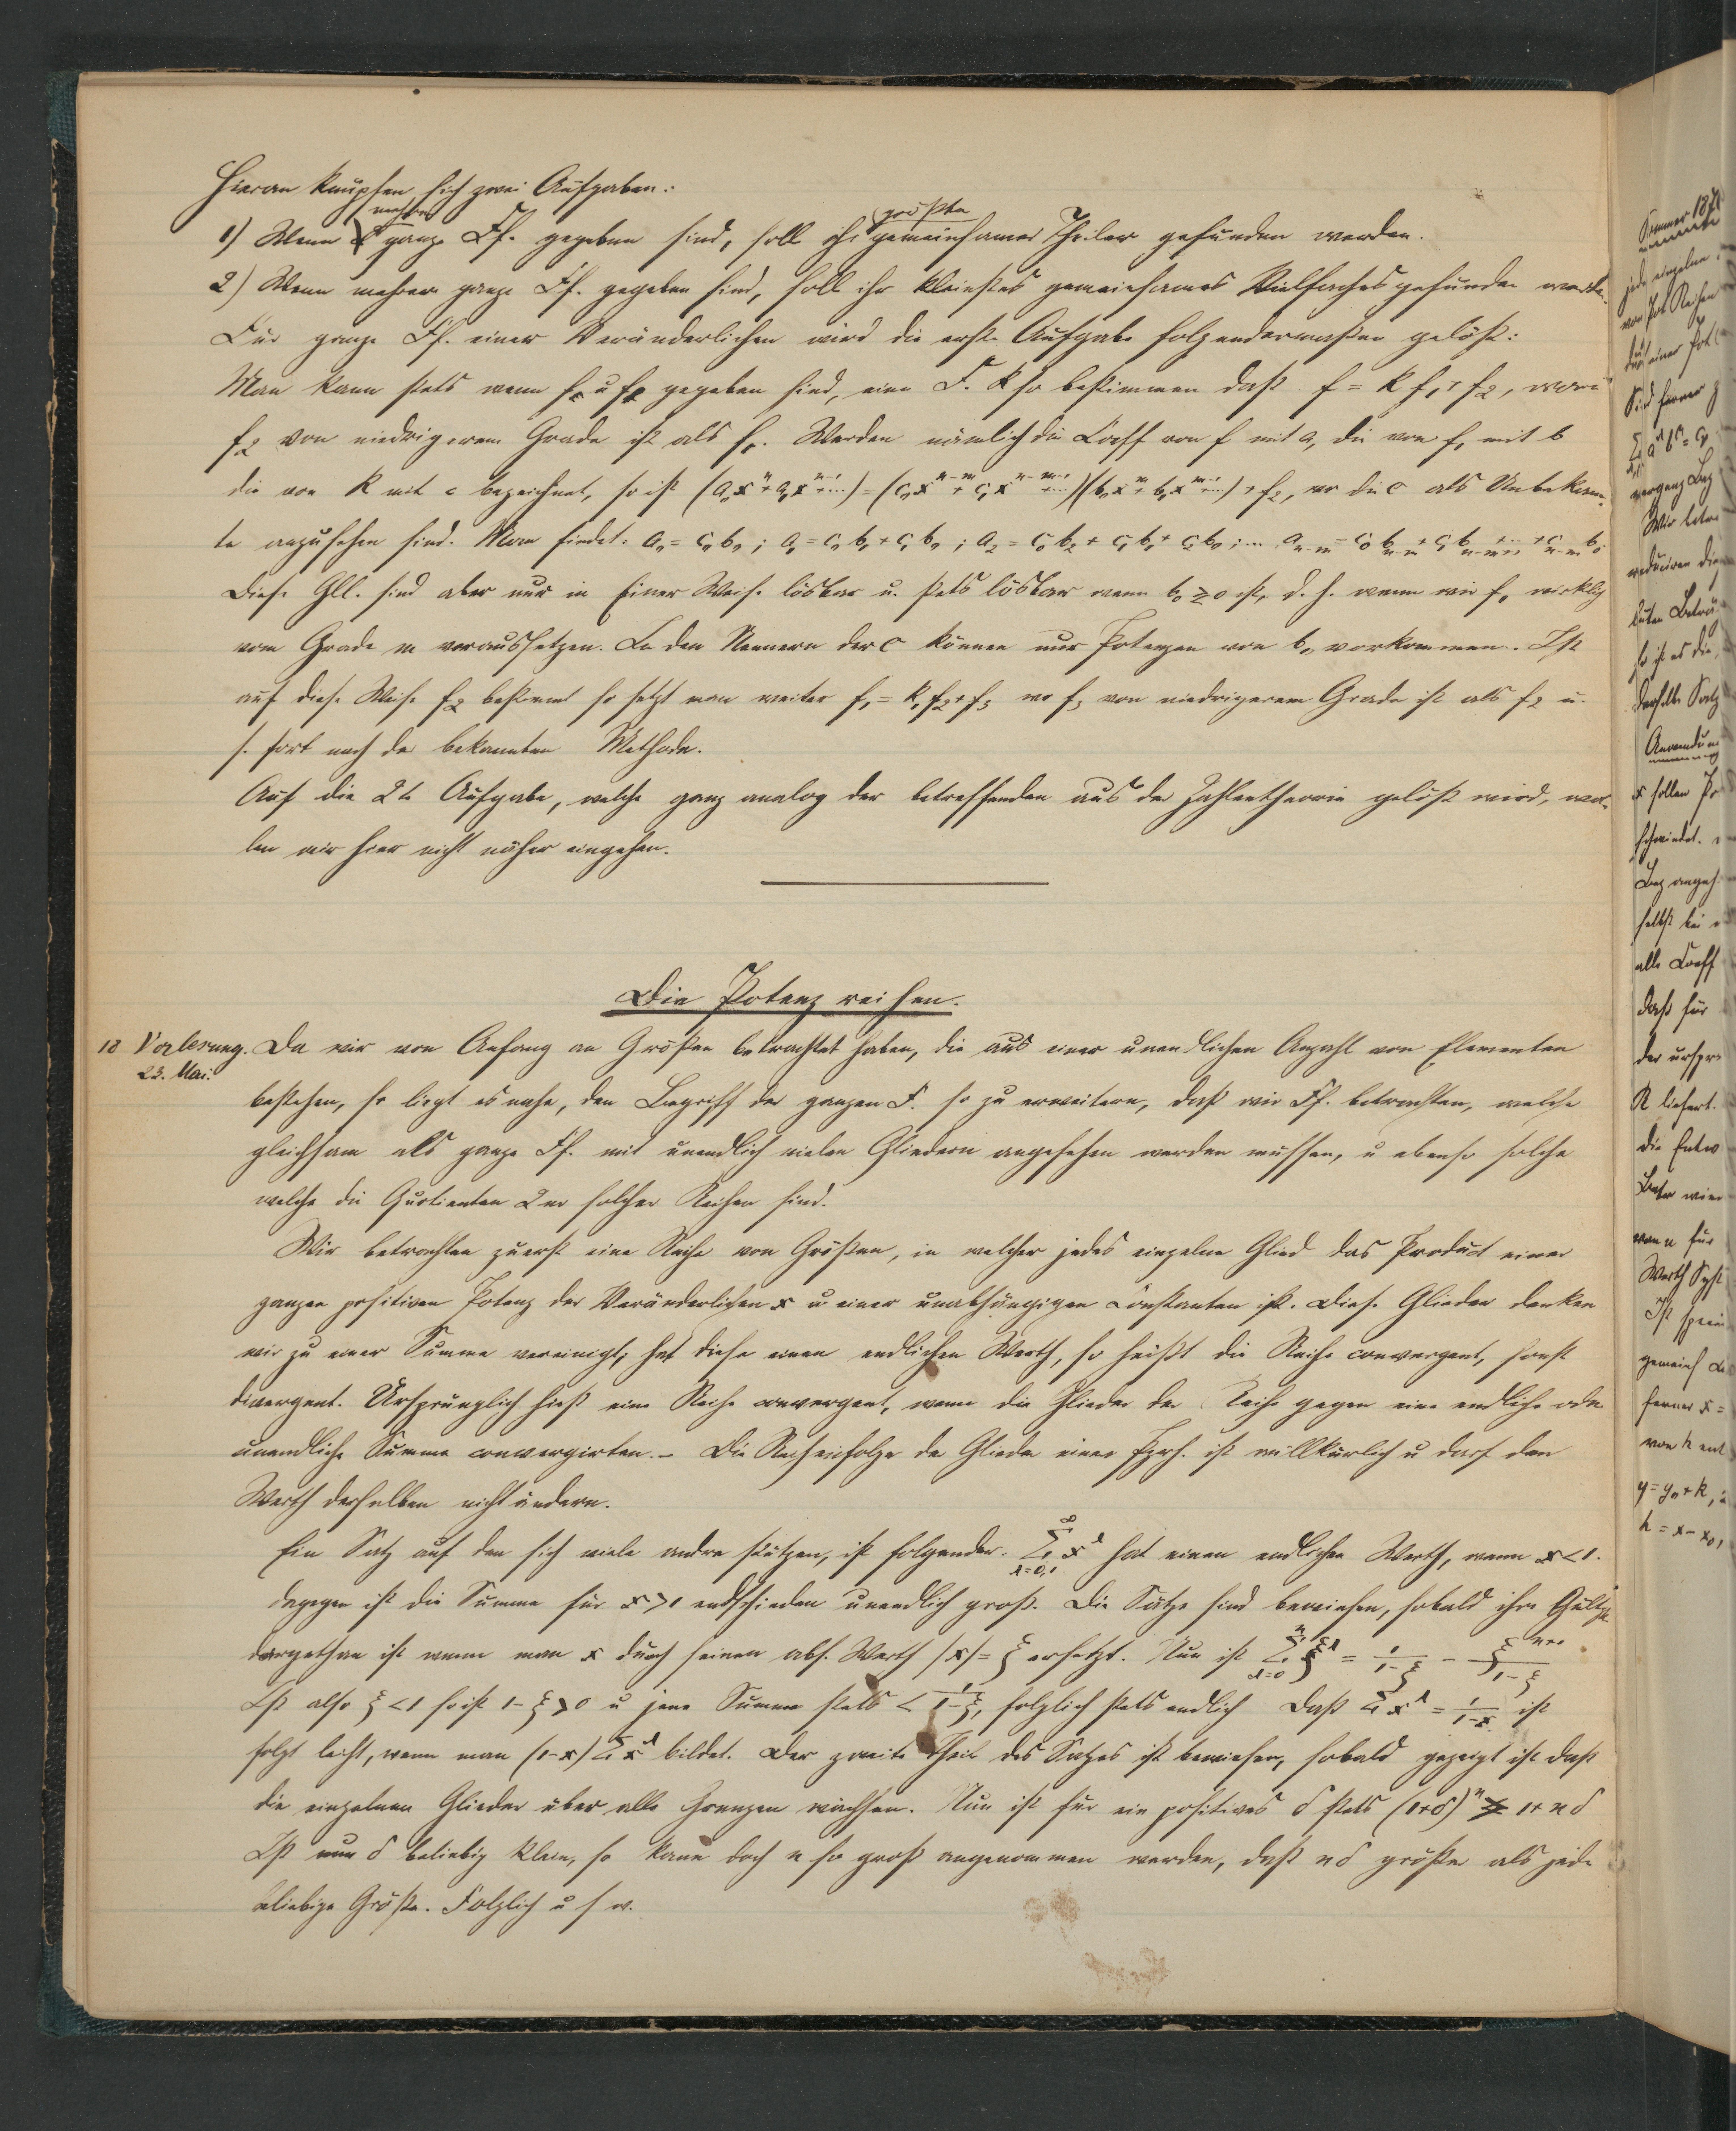 Hieran knüpfen sich zwei Aufgaben:
1) Wenn mehre ganze Ff. gegeben sind, soll ihr größter gemeinsamer Theiler gefunden werden.
2) Wenn mehrere ganze Ff. gegeben sind, soll ihr kleinstes gemeinsames Vielfaches gefunden werden.
Für ganze Ff. einer Veränderlichen wird die erste Aufgabe folgendermaßen gelöst:
Man kann stets wenn f u f₁ gegeben sind, eine F. k so bestimmen daß f = k f₁ + f₂, worin
f₂ von niedrigerem Grade ist als f₁. Werden nämlich die Coeff von f mit a, die von f₁ mit b
die von k mit c bezeichnet, so ist (a₀xⁿ + a₁xⁿ⁻¹+...) = (c₀xⁿ⁻ᵐ + c₁xⁿ⁻ᵐ⁻¹+...)(b₀xᵐ + b₁xᵐ⁻¹+...) + f₂, wo die c als Unbekann-
te anzusehen sind. Man findet: a₀ = c₀b₀; a₁ = c₀b₁ + c₁b₀; a₂ = c₀b₂ + c₁b₁ + c₂b₀; ...
Diese Gll. sind aber nur in Einer Weise lösbar u. stets lösbar wenn b₀ ≷ 0 ist, d. h. wenn wir f₁ wirklich
vom Grade m voraussetzen. In den Nennern der c können nur Potenzen von b₀ vorkommen. Ist
auf diese Weise f₂ bestimmt so setzt man weiter f₁ = k₁f₂ + f₃ wo f₃ von niedrigerem Grade ist als f₂ u.
s. fort nach der bekannten Methode.
Auf die 2te Aufgabe, welche ganz analog der betreffenden aus der Zahlentheorie gelöst wird, wol-
len wir hier nicht näher eingehen.
Die Potenzreihen.
18 Vorlesung. Da wir von Anfang an Größen betrachtet haben, die aus einer unendlichen Anzahl von Elementen
23. Mai:
bestehen, so liegt es nahe, den Begriff der ganzen F. so zu erweitern, daß wir Ff. betrachten, welche
gleichsam als ganze Ff. mit unendlich vielen Gliedern angesehen werden müssen, u ebenso solche
welche die Quotienten 2er solcher Reihen sind.
Wir betrachten zuerst eine Reihe von Größen, in welcher jedes einzelne Glied das Product einer
ganzen positiven Potenz der Veränderlichen x u einer unabhängigen Constanten ist. Diese Glieder denken
wir zu einer Summe vereinigt; hat diese einen endlichen Werth, so heißt die Reihe convergent, sonst
divergent. Ursprünglich hieß eine Reihe convergent, wenn die Glieder der Reihe gegen eine endliche oder
unendliche Summe convergirten. – Die Reihenfolge der Glieder einer ist willkürlich u darf den
Werth derselben nicht ändern.
Ein Satz auf den sich viele andre stützen, ist folgender. ∞ Σ λ=0,1 x^λ hat einen endlichen Werth, wenn x<1.
dagegen ist die Summe für x>1 entschieden unendlich groß. Die Sätze sind bewiesen, sobald ihre Gültigk.
dargethan ist wenn man x durch seinen abs. Werth |x| = ξ ersetzt. Nun ist n Σ λ=0 ξ^λ = 1/(1-ξ) - ξⁿ⁺¹/(1-ξ)
Ist also ξ<1 so ist 1-ξ>0 u jene Summe stets < 1/(1-ξ), folglich stets endlich Daß Σ x^λ = 1/(1-x) ist
folgt leicht, wenn man (1-x)Σ x^λ bildet. Der zweite Theil des Satzes ist bewiesen, sobald gezeigt ist daß
die einzelnen Glieder über alle Grenzen wachsen. Nun ist für ein positives δ stets (1+δ)ⁿ > 1+nδ
Ist nun δ beliebig klein, so kann doch n so groß angenommen werden, daß nδ größer als jede
beliebige Größe. Folglich u s w.
Sommer 187
jede einzelne
von Pot. Reihen
durch einer Pot
Sind ferner
Wir betra
reduciren die
so ist es die
derselbe Satz
Anwendun
x sollen
schwindet.
selbst bei
alle Coeff
daß für
der urspr
R liefert.
die Entw
von n für
Werth Syst
Ist
gemeins
ferner x =
von h ent
y = y₀ + k,
h = x - x₀,